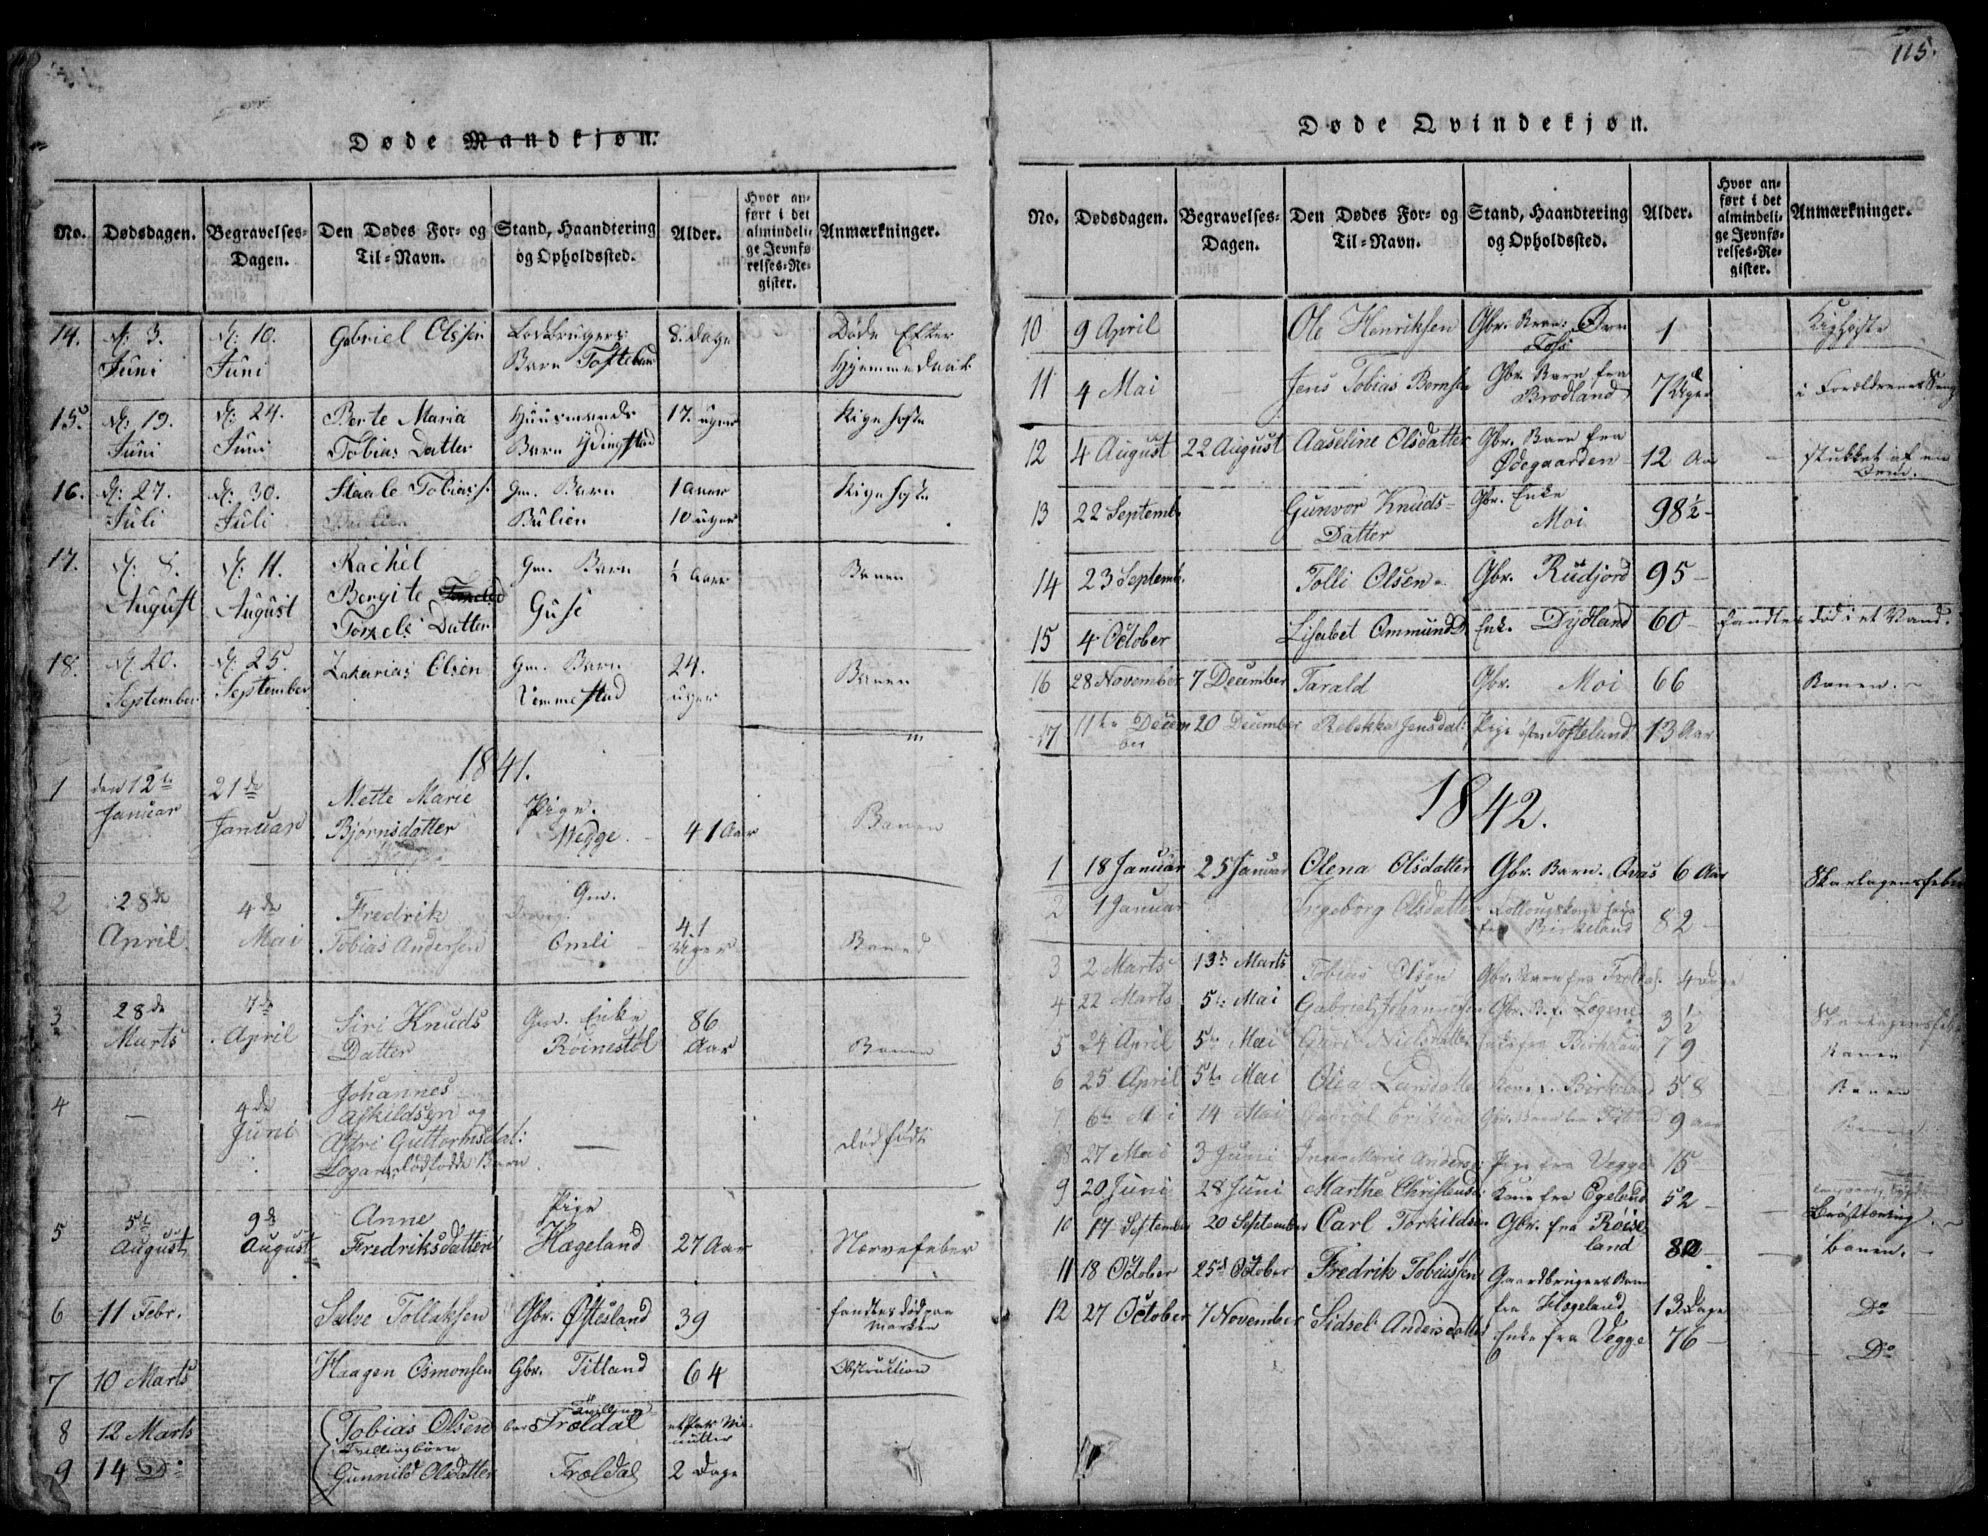 115.
Døde Mandkjøn.
No. Dødsdagen. Begravelses-Dagen. Den Dødes For- og Til-Navn. Stand, Haandtering og Opholdssted. Alder. Hvor anført i det almindelige Jevnførelses-Register. Anmærkninger.
14. d. 3. Juni d. 10. Juni Gabriel Olssen Barn Tofteland 8. Dage Døde Efter Hjemmedaab
15. d. 19. Juni d. 24. Juni Berte Maria Tobias Datter Huusmands Barn 17. uger Kighoste
16. d. 27. Juli d. 30. Juli Staale Tobias s. Gm. Barn Bulien 1 Aar 10 uger Kighoste
17. d. 8. August d. 11. August Rachel Bergite Torkels Datter Gm. Barn Guse ½ Aar Banen
18. d. 20. September d. 25. September Zakarias Olsen Gm. Barn 24. uger Banen
1841.
1 den 12te Januar 21de Januar Mette Marie Bjørnsdatter Pige. Vegge 41 Aar Banen
2 28de April 4de Mai Fredrik Tobias Andersen Gm. Omli 41 Uger Banen
3 28de Marts 7de April Siri Knuds Datter Gm. Enke Røinestøl 86 Aar Banen
4 — 4de Juni Johannes Askildsen og Astri Guttormsdat: dødfødde Barn — dødfødt
5 5te August 9de August Anne Fredriksdatter Pige Hægeland 27 Aar Nervefeber
6 11 Febr. Salve Tollaksen Gbr. Øftesland 39 fandtes død paa Marken
7 10 Marts Haagen Osmonsen Gbr. Titland 64 Obstruction
8 12 Marts Tobias Olsen Trældal Minutter
Tvillingbørn
9 14 Do Gunnild Olsdatter Trældal 2 Dage
Døde Qvindekjøn.
No. Dødsdagen. Begravelses-Dagen. Den Dødes For- og Til-Navn. Stand, Haandtering og Opholdssted. Alder. Hvor anført i det almindelige Jevnførelses-Register. Anmærkninger.
10 9 April Ole Henriksen Gbr. Barn 1 Kighoste
11 4 Mai Jens Tobias Gbr. Barn fra Brodland 7 Uger i Forældrenes Seng
12 4 August 22 August Aaseline Olsdatter Gbr. Barn fra Ødegaarden 12 Aar stukket af en
13 22 Septemb. Gunvor Knuds-Datter Gbr. Enke Moi 98½
14 23 Septemb. Tolli Olsen Gbr. Rudjord 95
15 4 October Lisabet Ommunds Enke Dydland 60 fandtes død i et Vand.
16 28 November 7 December Tarald Gbr. Moi 66 Banen.
17 11te December 20 December Rebekka Jensdat: Pige Tofteland 13 Aar
1842.
1 18 Januar 25 Januar Olena Olsdatter Gbr. Barn. Aas 6 Aar Skarlagensfeber
2 1 Januar Ingeborg Olsdatter fra Birkeland 82
3 2 Marts 13de Marts Tobias Olsen Gbr. Barn fra Trældal 4 Dage
4 22 Marts 5te Mai Gabriel Johannesen Gbr. B. f. Løgene 3½ Skarlagensfeber
5 24 April 5te Mai Guri Nielsdatter Enke fra Birkeland 79 Banen
6 25 April 5te Mai Olea Larsdatter Kone f. Birkeland 58 Banen
7 6te Mai 14 Mai Eriksen Gbr. Barn fra Titland 9 Aar Banen
8 27 Mai 3 Juni Marie Anders Pige fra Vegge 15
9 20 Juni 28 Juni Marthe Christensd: Kone fra Egeland 52
10 17 September 20 September Carl Torkildsen Gbr. fra Røiseland 80 Banen.
11 18 October 25de October Fredrik Tobiassen Gaardbrugers Barn fra Hægeland 13 Dage Do
12 27 October 7 November Sidsel Andersdatter Enke fra Vegge 76 Do